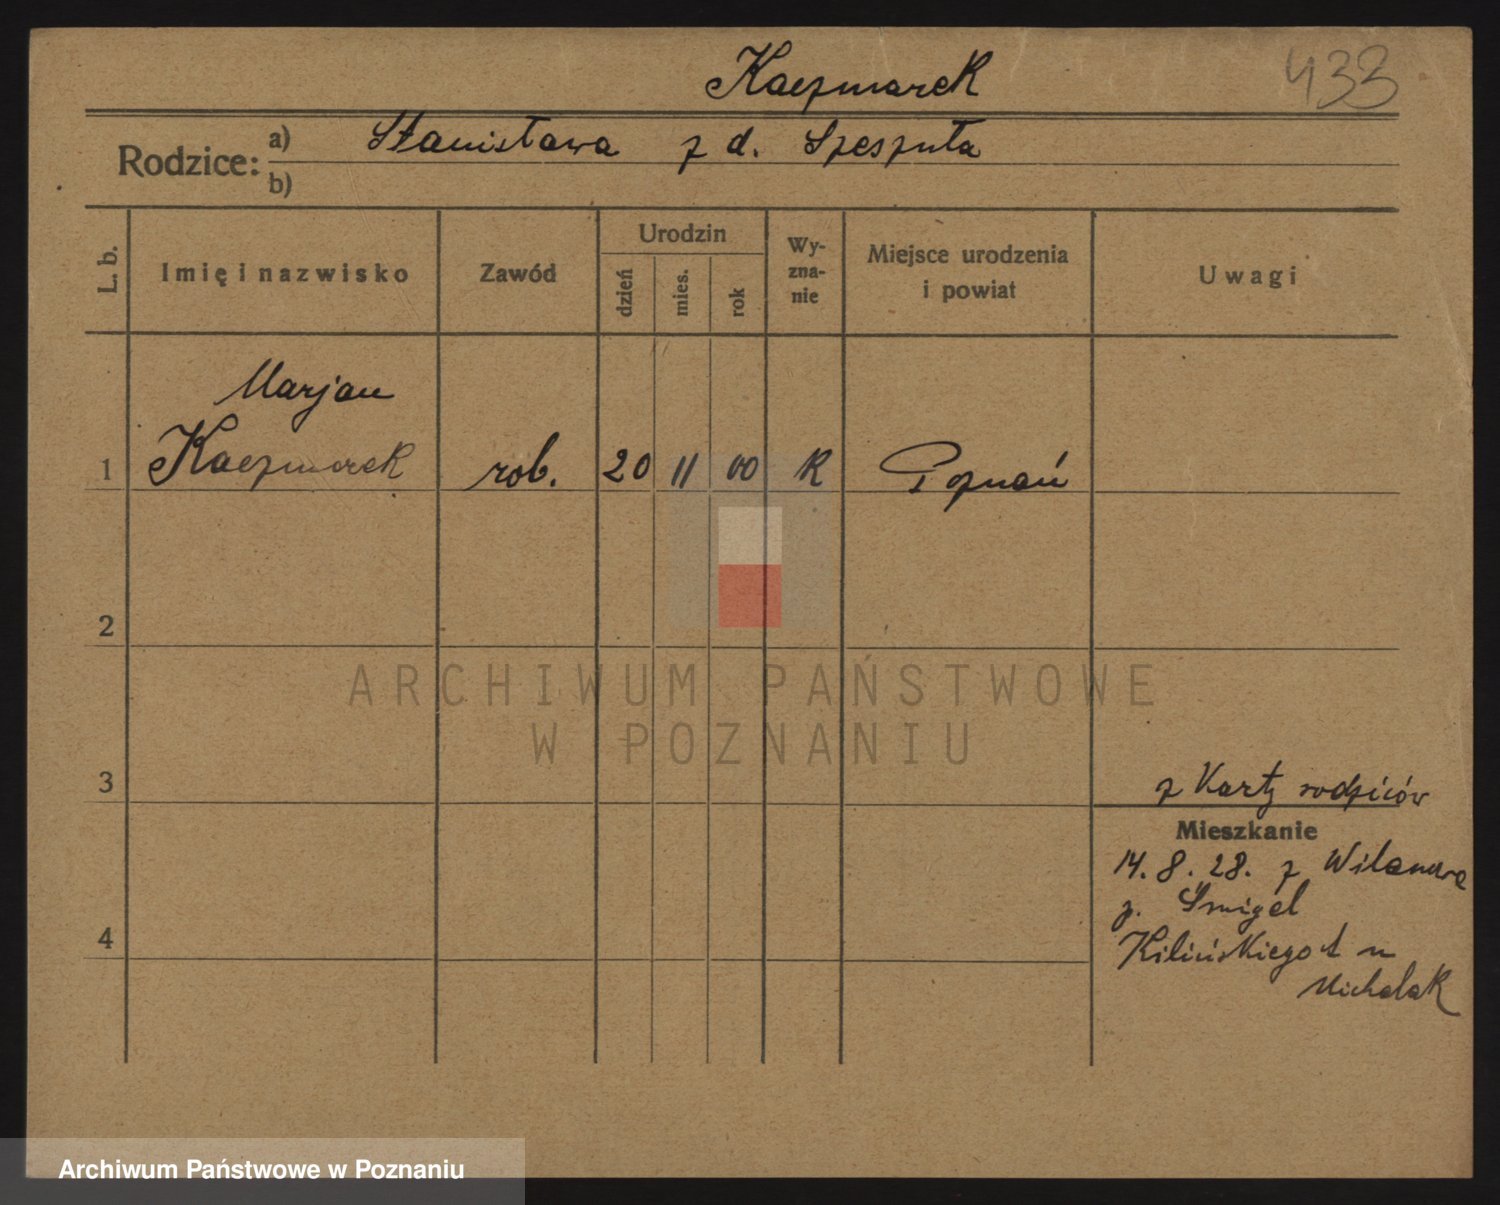 Kaczmarek
433
Rodzice: a) Stanisława z d. Szeszuła
b)
L. b. Imię i nazwisko Zawód Urodzin dzień mies. rok Wy-zna-nie Miejsce urodzenia i powiat Uwagi
Marjan
1 Kaczmarek rob. 20 11 00 K Poznań
2
ARCHIWUM PAŃSTWOWE
W POZNANIU
3
z Karty rodziców
Mieszkanie
14. 8. 28. z Wilanowa
p. Śmigel
4
Kilińskiego
Michalak
Archiwum Państwowe w Poznaniu